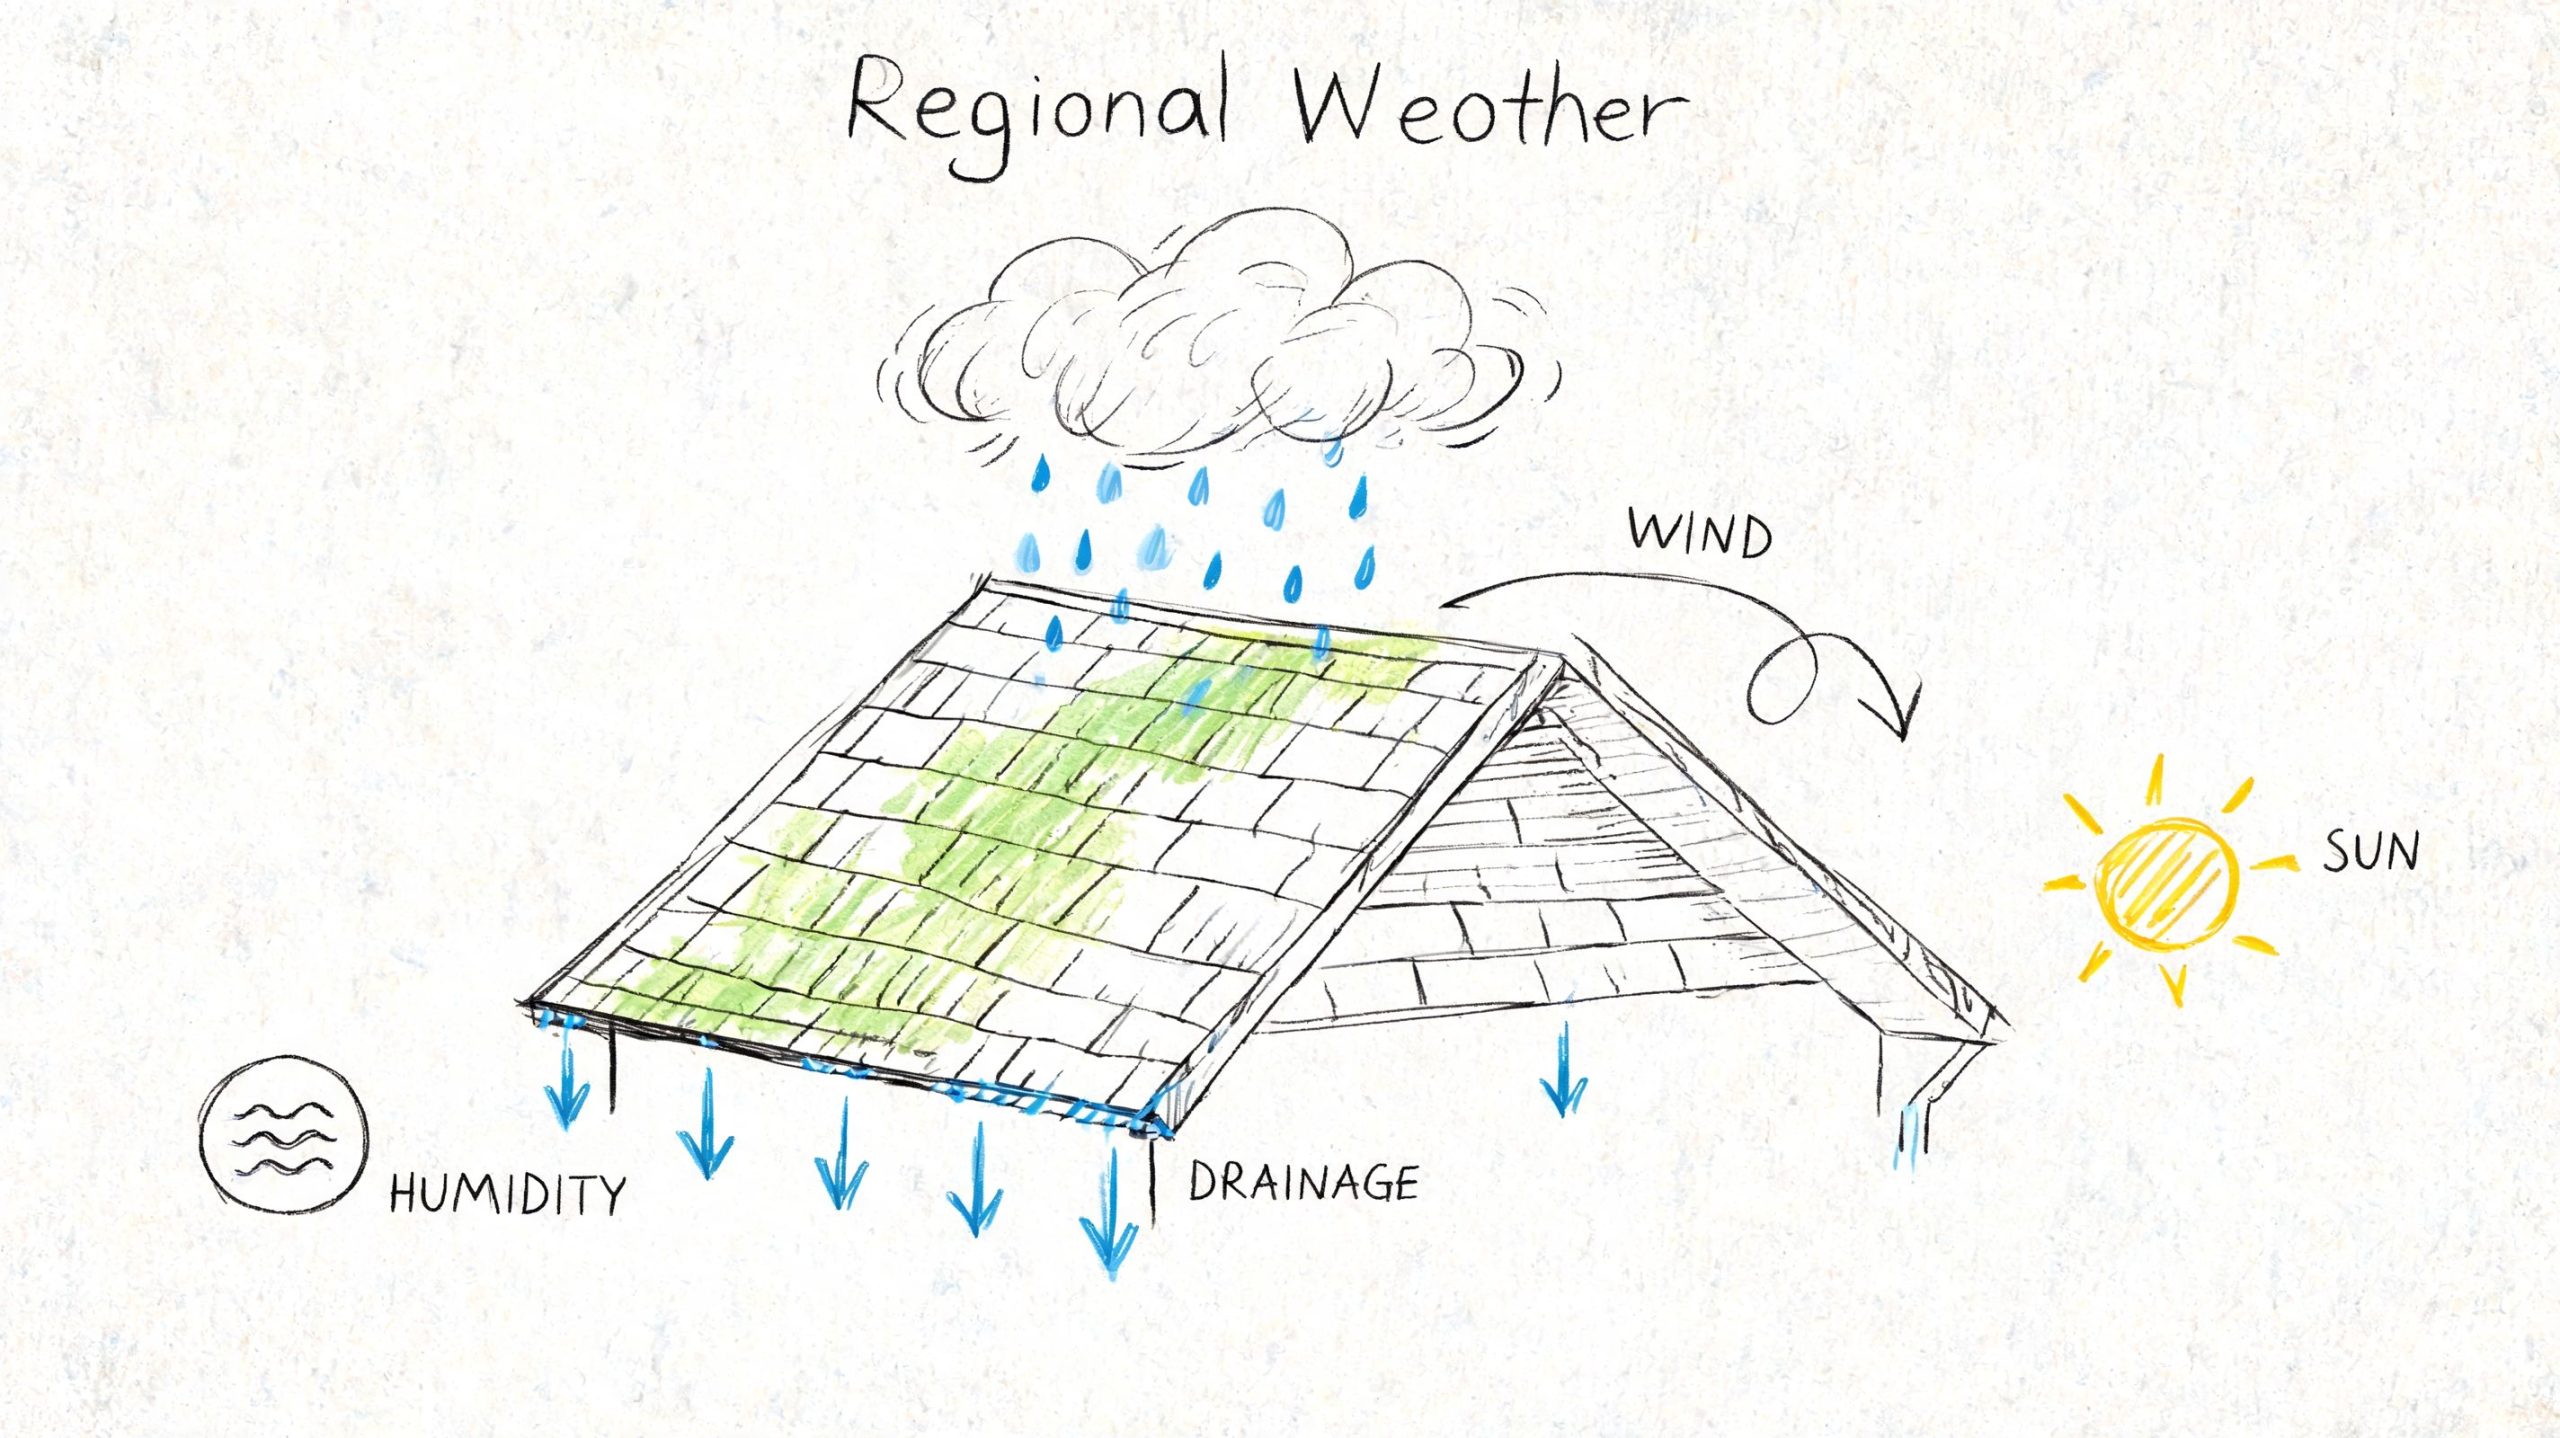 Regional Weother
WIND
SUN
HUMIDITY
DRAINAGE